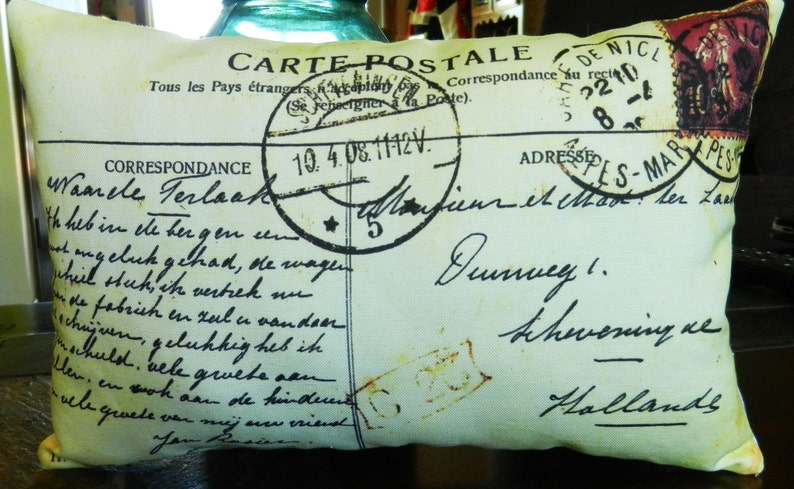 CARTE POSTALE
Tous les Pays étrangers n'acceptent pas de Correspondance au recto
(Se renseigner à la Poste).
GARE DE NICE
22 10
8 -4
ALPES-MAR
SCHEVENINGEN
10.4.08.11-12V.
5
CORRESPONDANCE
ADRESSE
Waarde Terlaak
Ik heb in de bergen een
groot ongeluk gehad, de wagen
stuk, ik vertrek nu
de fabriek en zal u vandaar
schrijven, gelukkig heb ik
schuld. vele groete aan
allen. en ook aan de kinderen
vele groete van mij uw vriend
Jan
Monsieur et Mad. ter Laak
Duinweg 1.
Scheveningde
Hollande